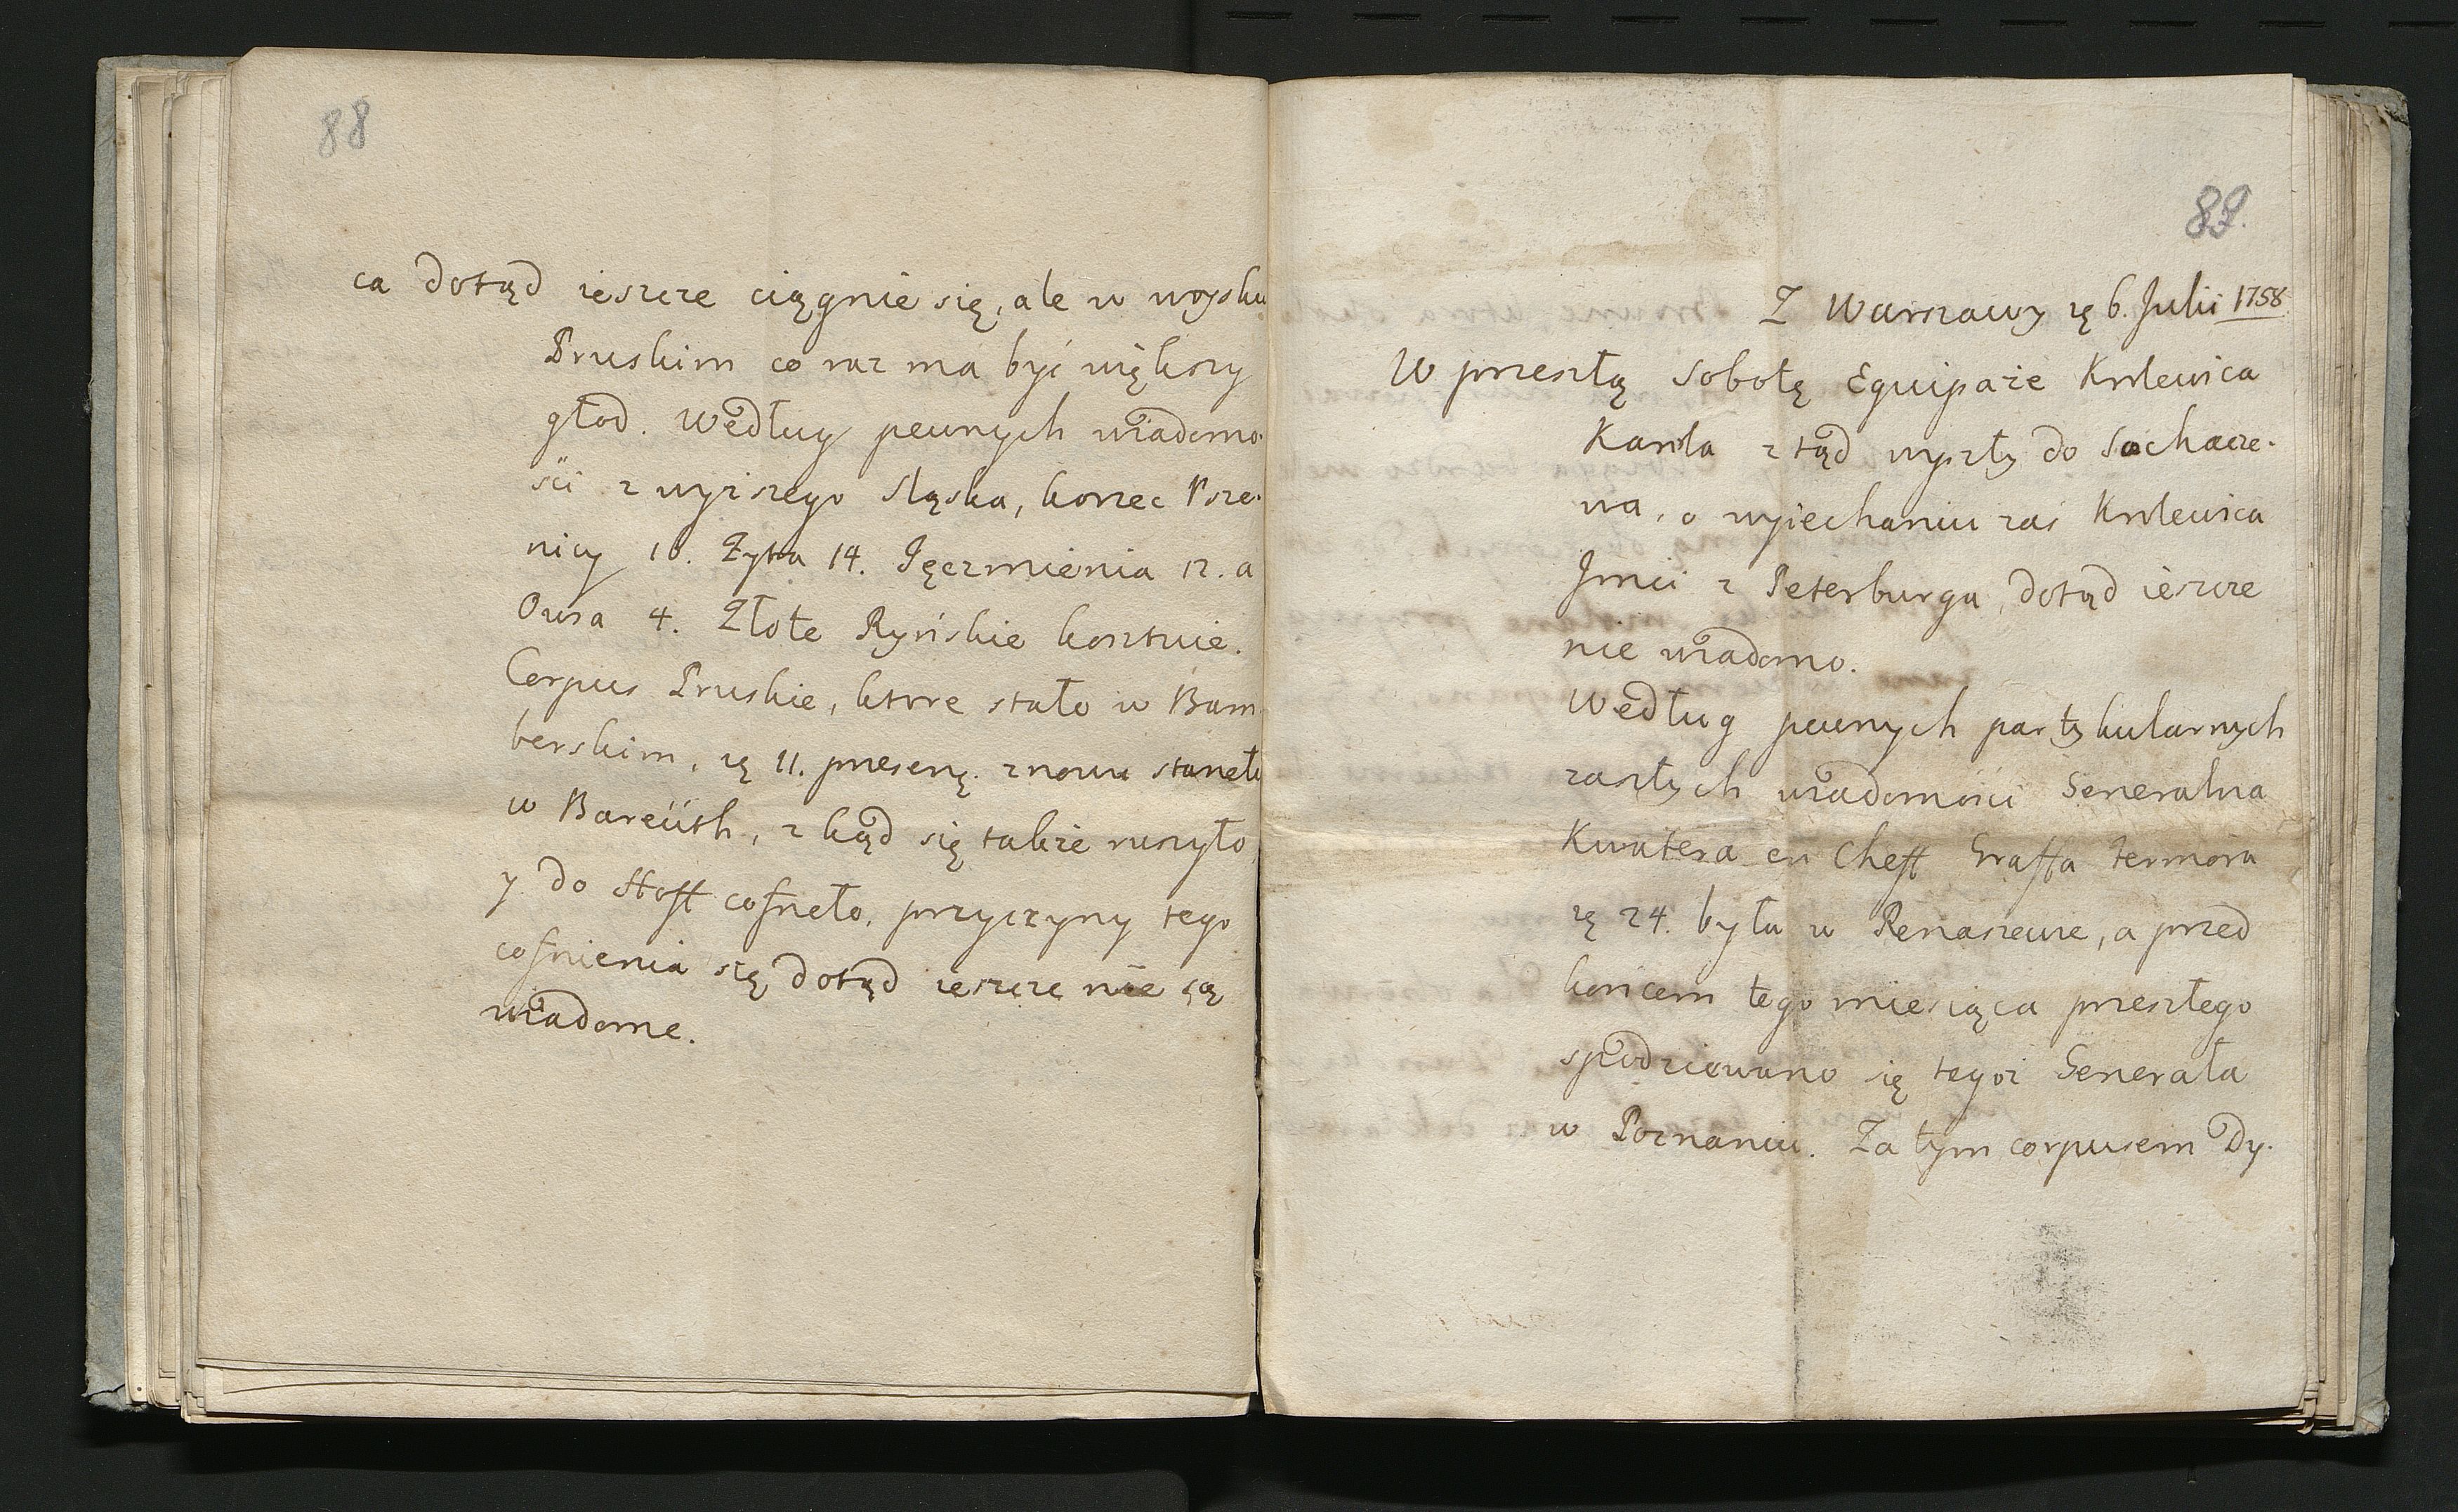 88
ca dotąd ieszcze ciągnie się, ale w woysku
Pruskim co raz ma być większy
głod. Według pewnych wiadomo-
ści z wyiszego Sląska, korzec Psze-
nicy 18. Zyta 14. Jęczmienia 12. a
Owsa 4. Złote Ryńskie kosztuie.
Corpus Pruskie, ktore stało w Bam-
berskim, ię 11. presenę. znowu staneło
w Bareüth, z kąd się takze ruszyło
y do Hoff cofneło, przyczyny tego
cofnienia się dotąd ieszcze nie są
wiadome.
89.
Z Warszawy ię 6. Julii 1758
W przeszłą Sobotę Equipaże Krolewica
Karola z tąd wyszły do Sochacze-
wa, o wyiechaniu zaś Krolewica
Jmci z Peterburga, dotąd ieszcze
nie wiadomo.
Według pewnych partykularnych
zaszłych wiadomości Generalna
Kwatera en Cheff Graffa Fermora
ię 24. była w Renaszewie, a przed
końcem tego miesiąca przeszłego
spodziewano się tegoż Generała
w Poznaniu. Za tym corpusem Dy-